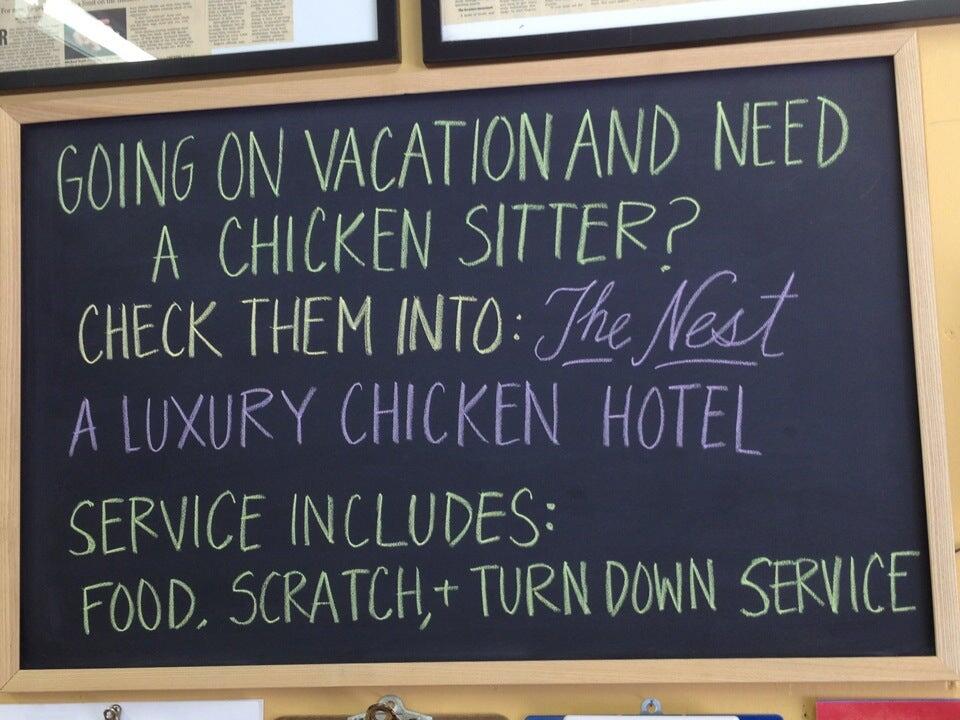 GOING ON VACATION AND NEED
A CHICKEN SITTER?
CHECK THEM INTO: The Nest
A LUXURY CHICKEN HOTEL
SERVICE INCLUDES:
FOOD, SCRATCH,+ TURN DOWN SERVICE